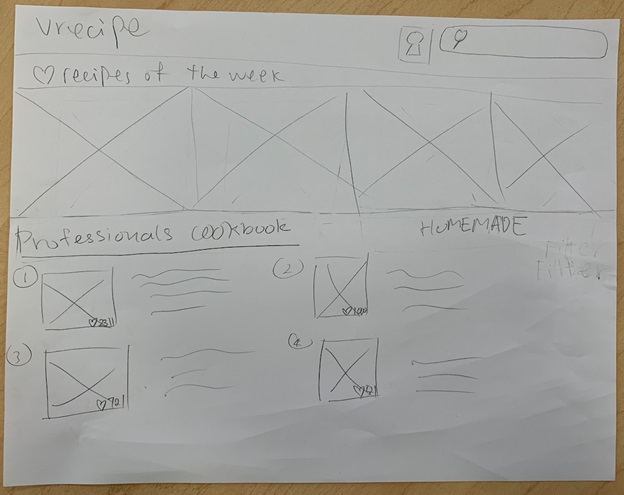 vrecipe
♡ recipes of the week
Professionals cookbook
HOMEMADE
Filter
① ②
♡2311
③ ④
♡721